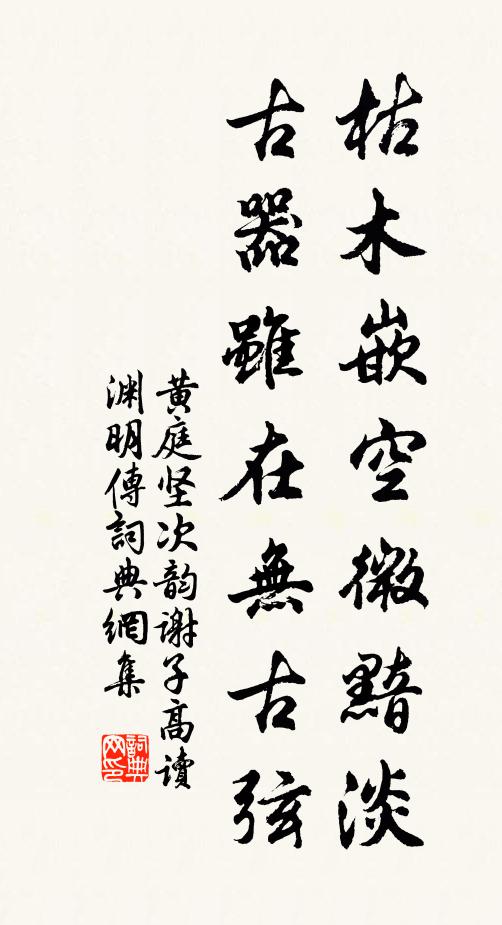 枯木嵌空微黯淡
古器雖在無古弦
黄庭坚次韵谢子高讀
渊明傳詞典網集
詞典網印